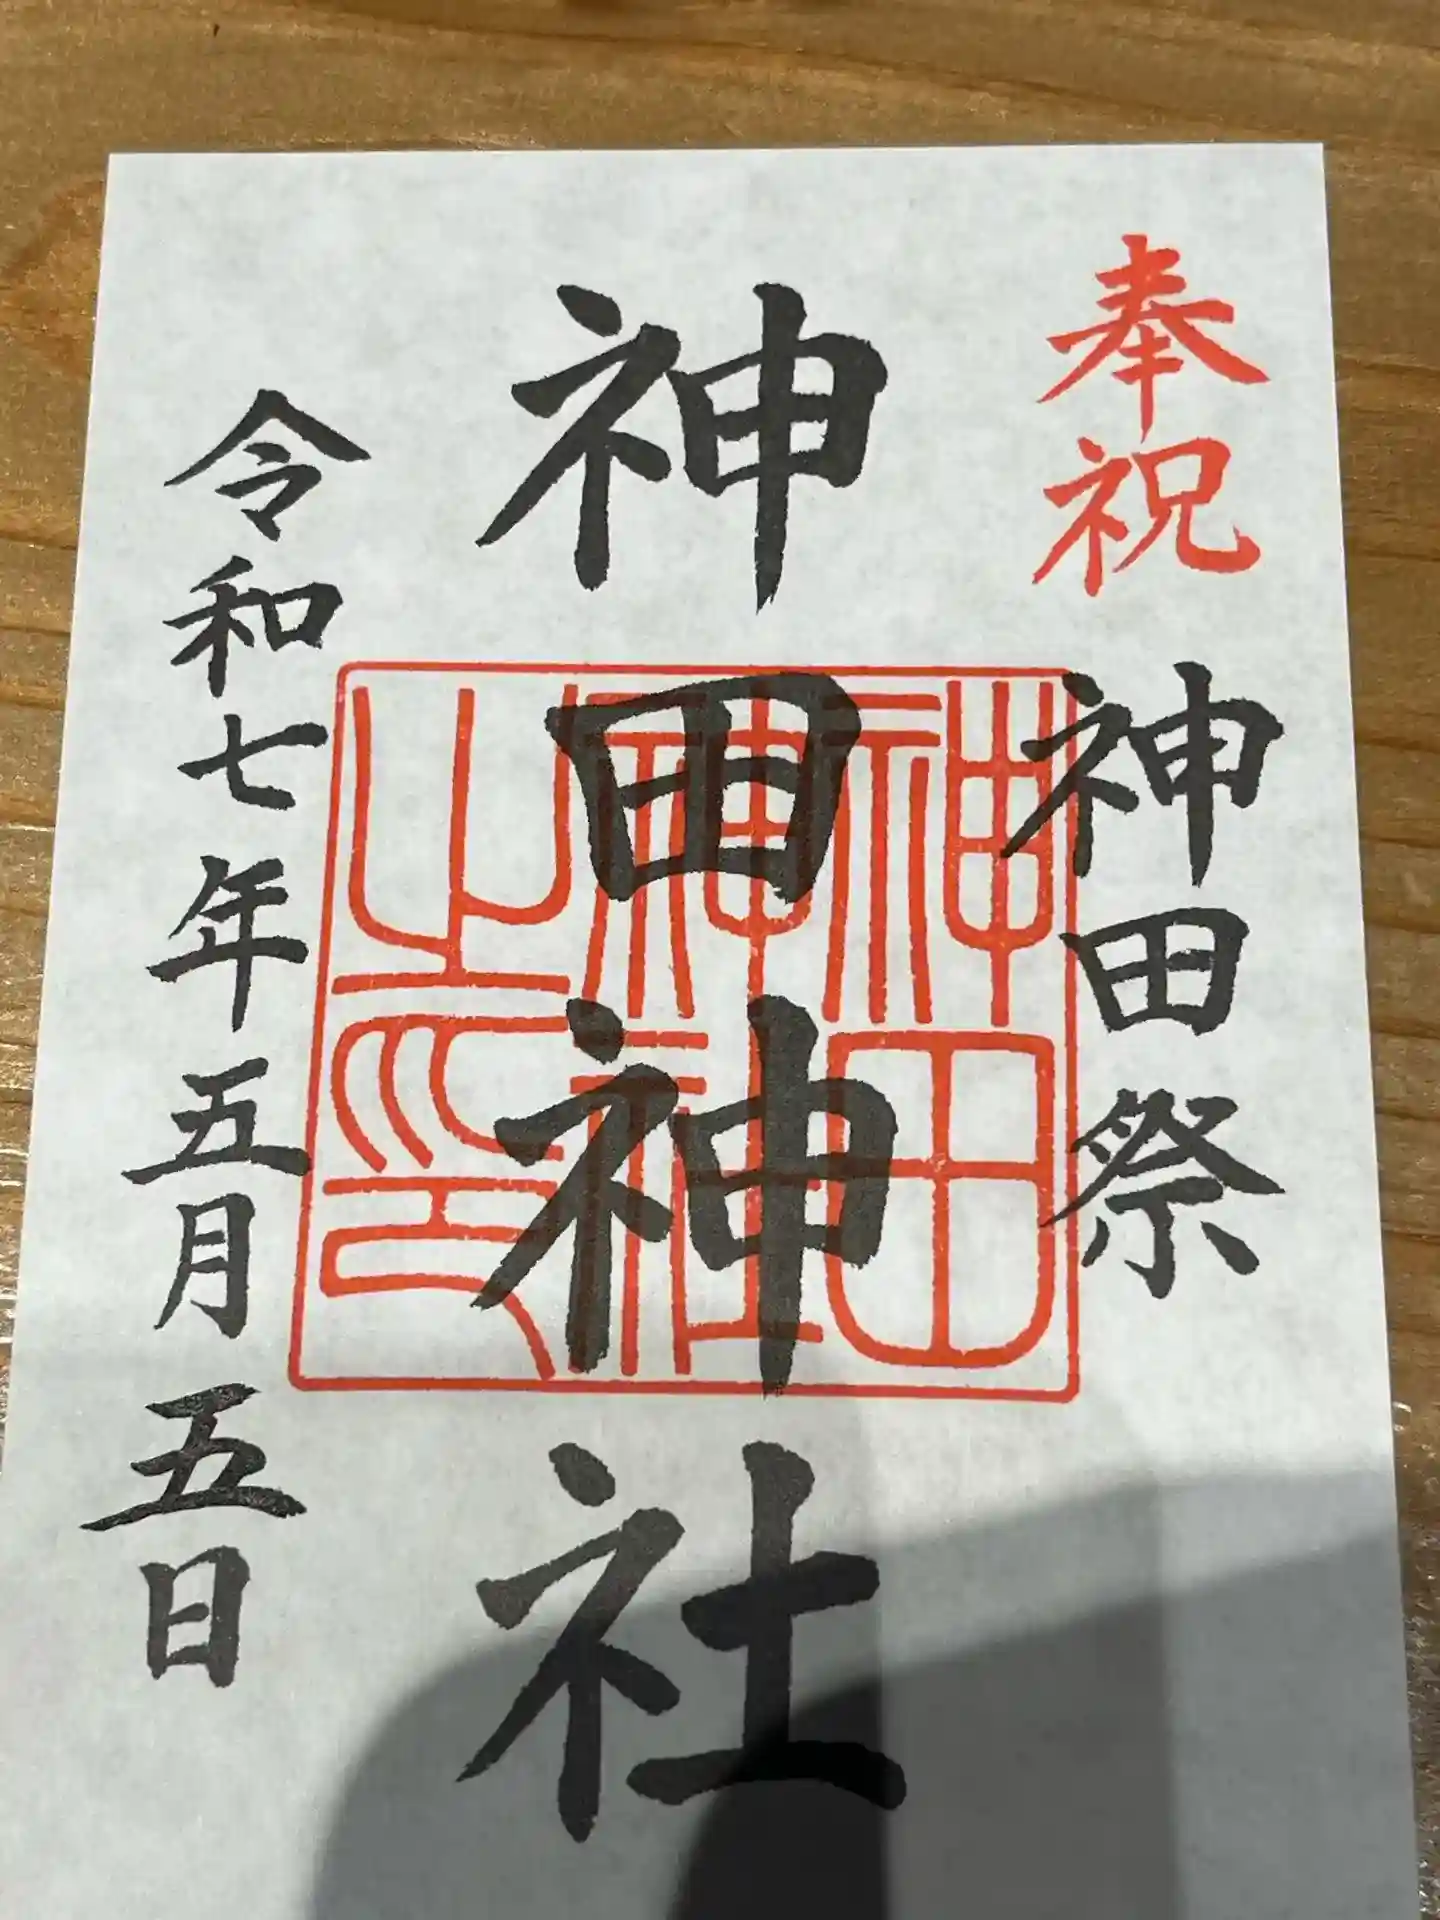 奉祝 神田祭
神田神社
神田神社之印
令和七年五月五日